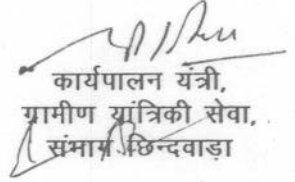 कार्यपालन यंत्री,
ग्रामीण यांत्रिकी सेवा,
संभाग छिन्दवाड़ा